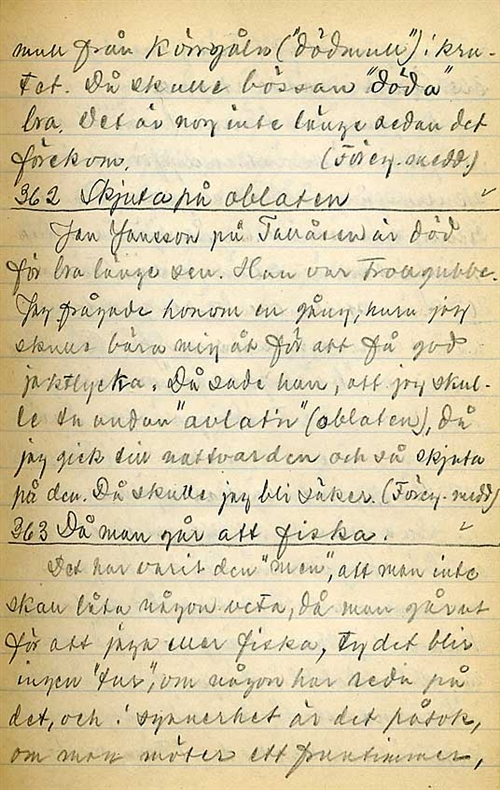 mull från Körrgåln ("dödmull") i kru-
tet. Då skulle bössan "döda"
bra. Det är nog inte länge sedan det
förekom. (Föreg. medd.)
362 Skjuta på oblaten
Jan Jansson på Tallåsen är död
för bra länge sen. Han var Trollgubbe.
Jag frågade honom en gång, huru jag
skulle bära mig åt för att få god
jaktlycka. Då sade han, att jag skul-
le ta undan "avlat'n" (oblaten), då
jag gick till nattvarden och så skjuta
på den. Då skulle jag bli säker. (Föreg. medd)
363 Då man går att fiska.
Det har varit den "men", att man inte
skall låta någon veta, då man går ut
för att jaga eller fiska, ty det blir
ingen "tur", om någon har reda på
det, och i synnerhet är det påtok,
om man möter ett fruntimmer,